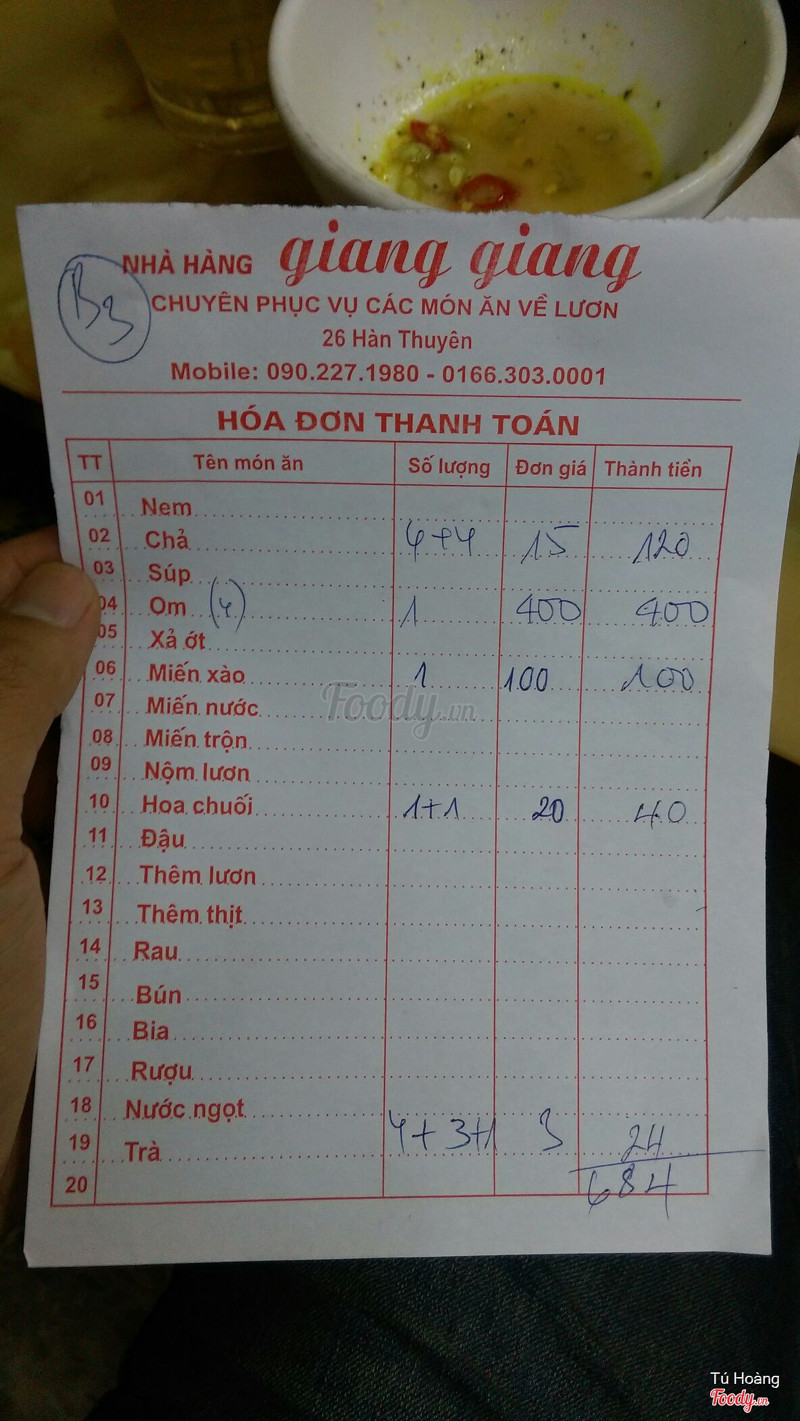 B3
NHÀ HÀNG giang giang
CHUYÊN PHỤC VỤ CÁC MÓN ĂN VỀ LƯƠN
26 Hàn Thuyên
Mobile: 090.227.1980 - 0166.303.0001
HÓA ĐƠN THANH TOÁN
TT Tên món ăn Số lượng Đơn giá Thành tiền
01 Nem
02 Chả 4+4 15 120
03 Súp
04 Om (4) 1 400 400
05 Xả ớt
06 Miến xào 1 100 100
07 Miến nước
Foody.vn
08 Miến trộn
09 Nộm lươn
10 Hoa chuối 1+1 20 40
11 Đậu
12 Thêm lươn
13 Thêm thịt
14 Rau
15 Bún
16 Bia
17 Rượu
18 Nước ngọt
19 Trà 4+3+1 3 24
20 684
Tú Hoàng
Foody.vn